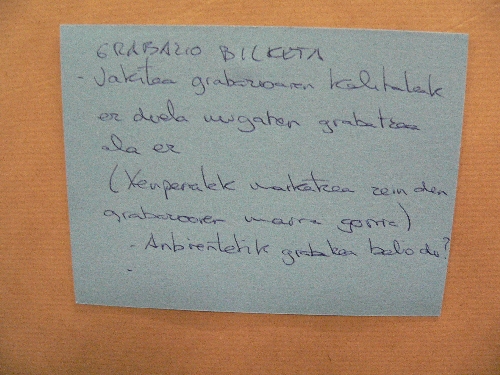 GRABAZIO BILKETA
- Jakitea grabazioaren kalitateak
ez duela mugatzen grabatzea
ala ez
(Xenperalek markatzea zein den
grabazioaren marra gorria)
- Anbientetik grabatzea balio du?
-